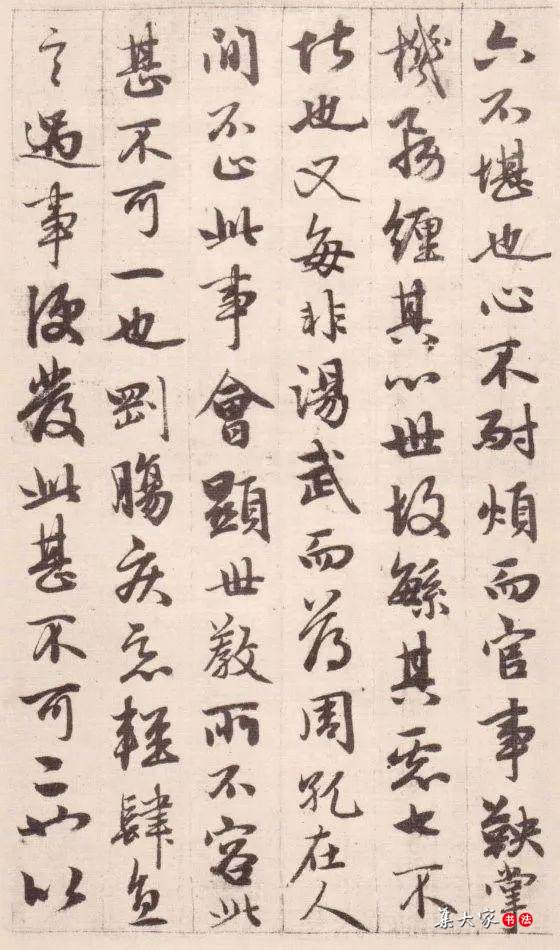 六不堪也心不耐煩而官事鞅掌
機務纏其心世故繁其慮七不
堪也又每非湯武而薄周孔在人
間不止此事會顯世教所不容此
甚不可一也剛腸疾惡輕肆直
言遇事便發此甚不可二也以
集大家书法